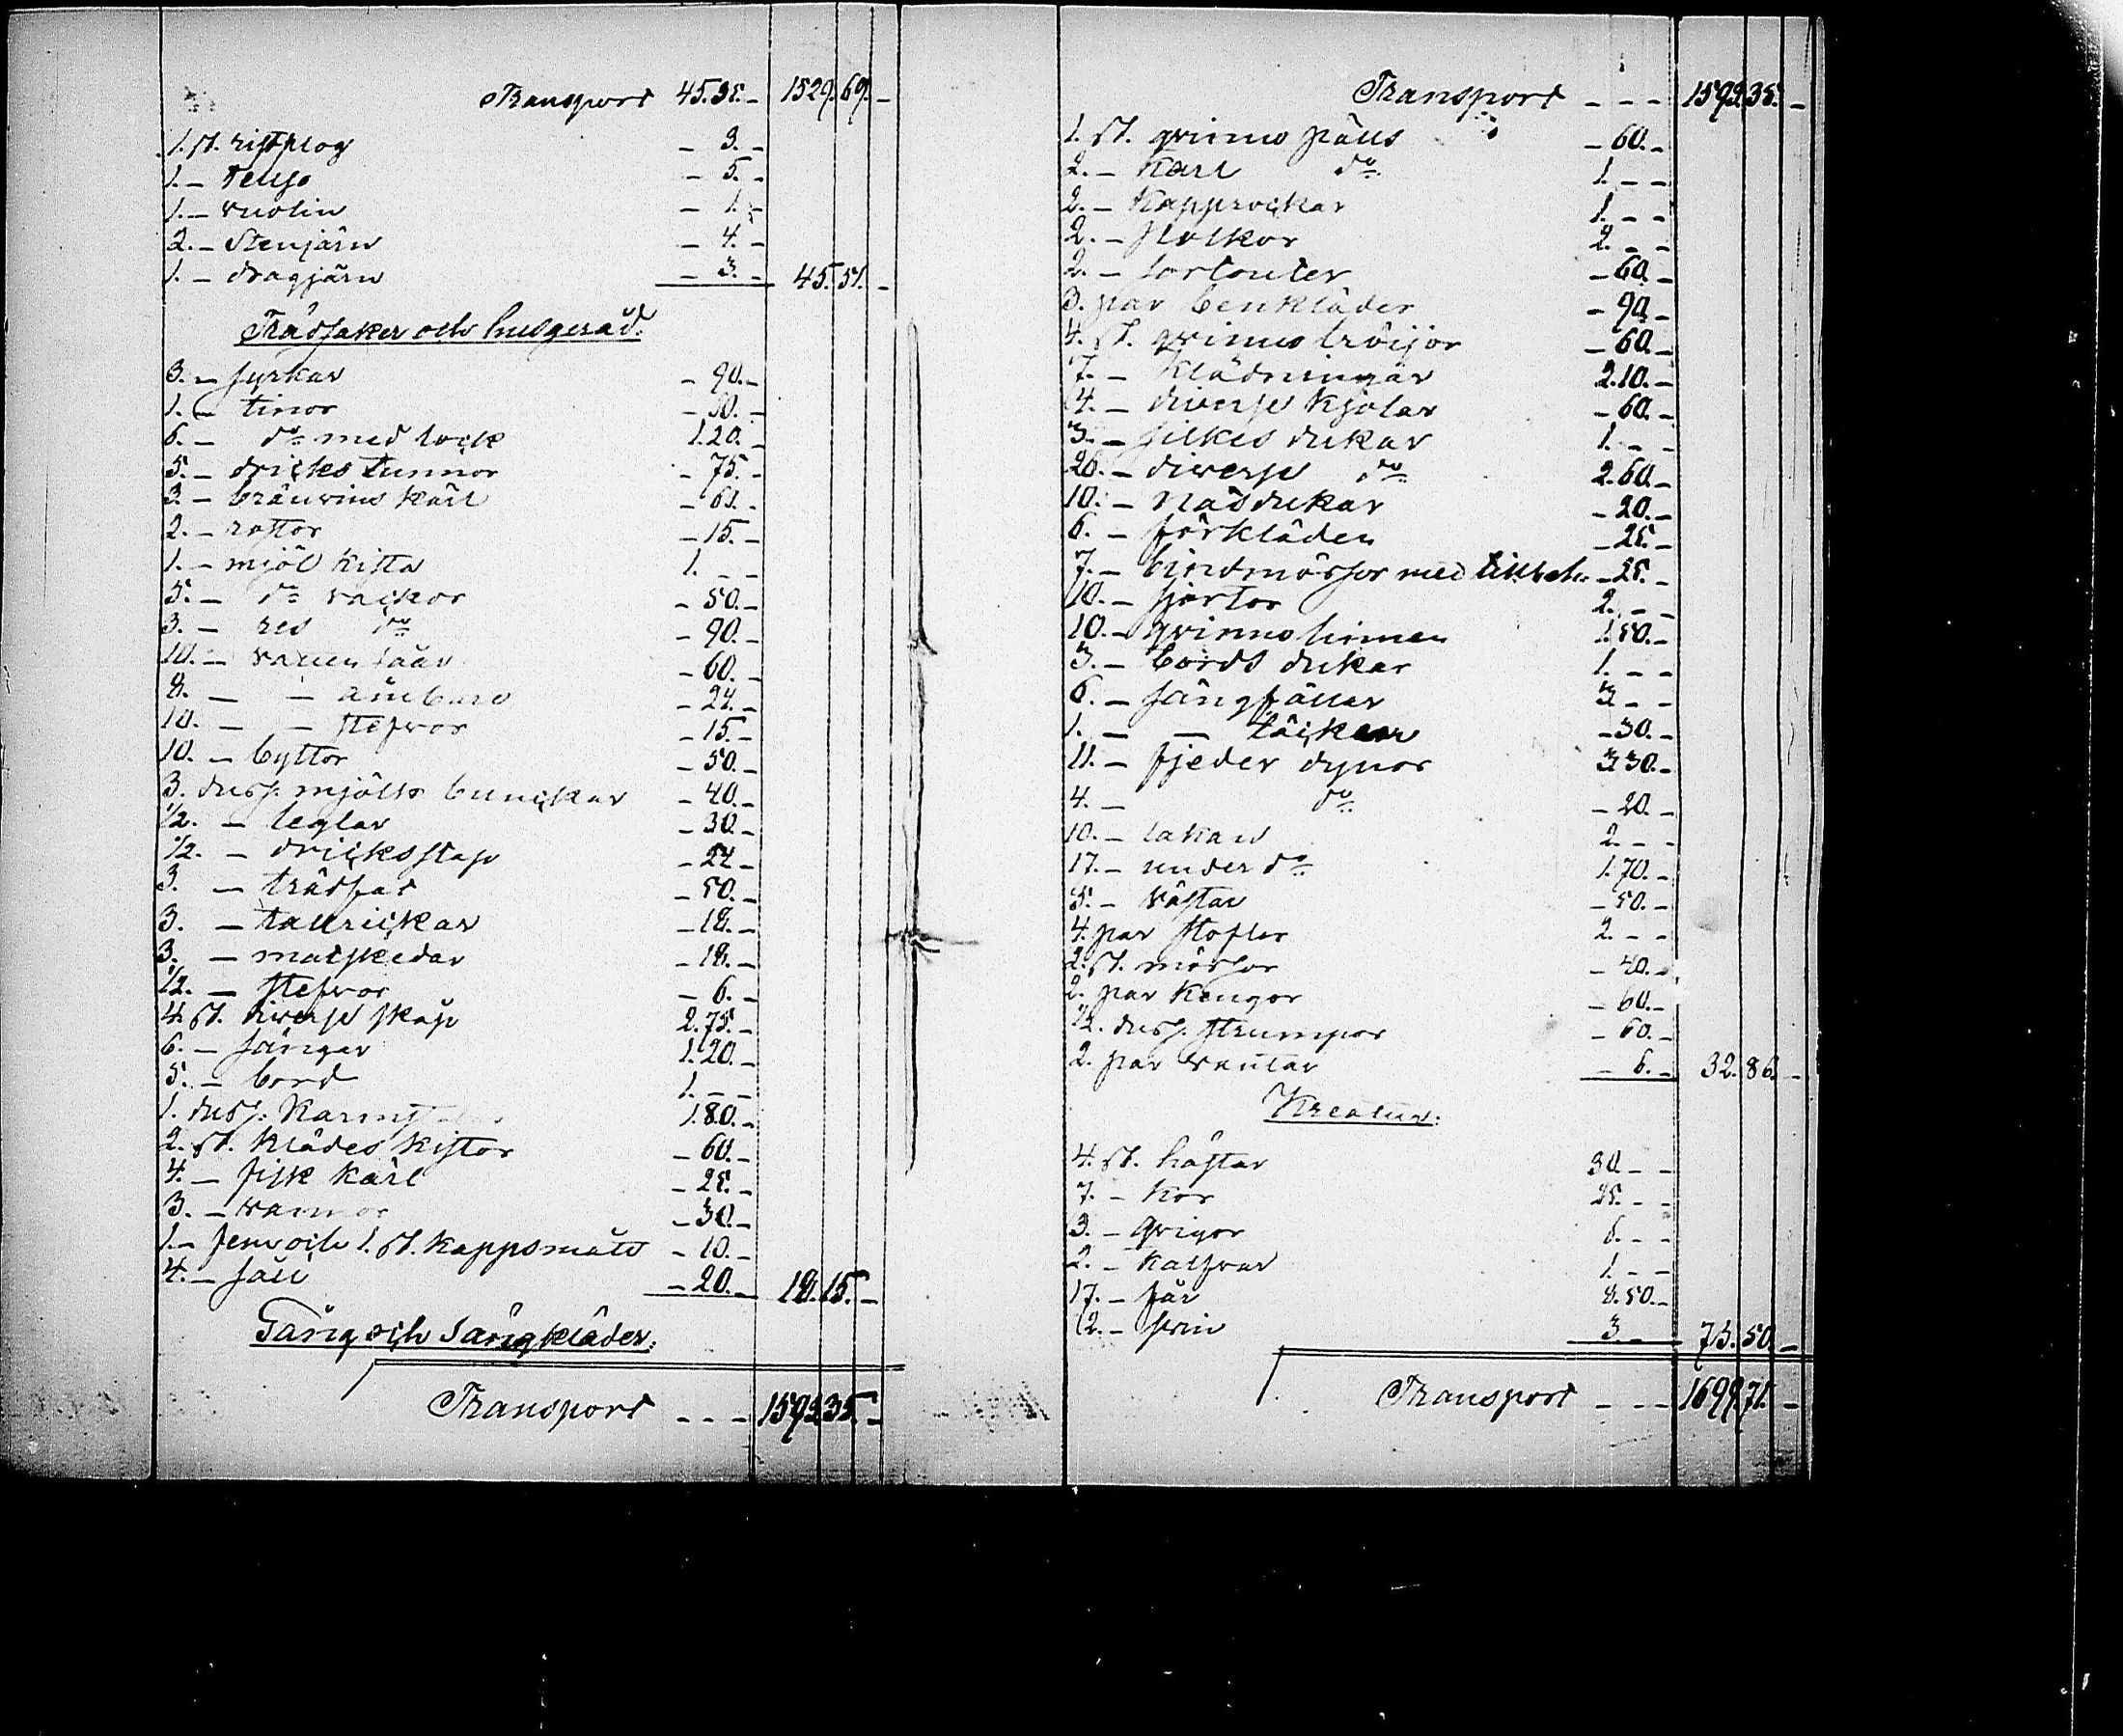 Transport 45.35.- 1529.69.-
1. st. ristplog - 3.-
1. - telyo - 5.-
1. - vuolin - 1.-
2. - Stenjärn - 4.-
1. - dragjärn - 3.- 45.51.-
Trädsaker och husgeråd:
3. - fyrkar - 90.-
1. - tinor - 30.-
6. - do med lock 1.20.-
5. - dricks tunnor - 75.-
3. - bränvins kärl - 61.-
2. - rottor - 15.-
1. - mjöl kista 1. - -
5. - do vackor - 50.-
3. - res do - 90.-
10. - vatten såar - 60.-
8. - - ämbare - 24.-
10. - - stefvor - 15.-
10. - byttor - 50.-
3. duss: mjölks bunckar - 40.-
1/2. - leglar - 30.-
1/2. - dricksstop - 24.-
3. - trädfat - 50.-
3. - tallrickar - 18.-
3. - matskedar - 18.-
1/2. - stefvor - 6.-
4. st. diverse skåp 2.75.-
6. - sängar 1.20.-
5. - bord 1. - -
1. duss: Karmstolar 1.80.-
2. st. klädes kistor - 60.-
4. - fisk kärl - 25.-
3. - vannor - 30.-
1. - fem och 1. st. kappsmått - 10.-
4. - såll - 20.- 18.15.-
Gång och Sängkläder:
Transport - - - 1593.35.-
Transport - - - 1593.35.-
1. st. qvinno päls - 60.-
2. - Karl do 1. - -
2. - Kapprockar 1. - -
2. - polkor 2. - -
2. - sortouter - 60.-
3. par benkläder - 90.-
4. st. qvinno tröijor - 60.-
7. - klädningar 2.10.-
4. - diverse kjolar - 60.-
3. - silkes dukar 1. - -
26. - diverse do 2.60.-
10. - näsdukar - 20.-
6. - förkläden - 25.-
7. - bindmössor med - 25.-
10. - sjortor 2. - -
10. - qvinno linnen 1.50.-
3. - bords dukar 1. - -
6. - sängfällar 3 - -
1. - - täcken - 30.-
11. - fjeder dynor 3 30.-
4. - do - 20.-
10. - lakan 2. - -
17. - under do 1.70.-
5. - västar - 50.-
4. par stoflor 2. - -
2. st. mössor - 40.-
2. par Kengor - 60.-
1/2. duss: strumpor - 60.-
2. par vantar - 6.- 32.86.-
Kreatur:
4. st. hästar 30 - -
7. - kor 25. - -
3. - qvigor 6. - -
2. - kalfvar 1. - -
17. - får 8.50.-
2. - svin 3 - 73.50.-
Transport - - - 1699.71.-